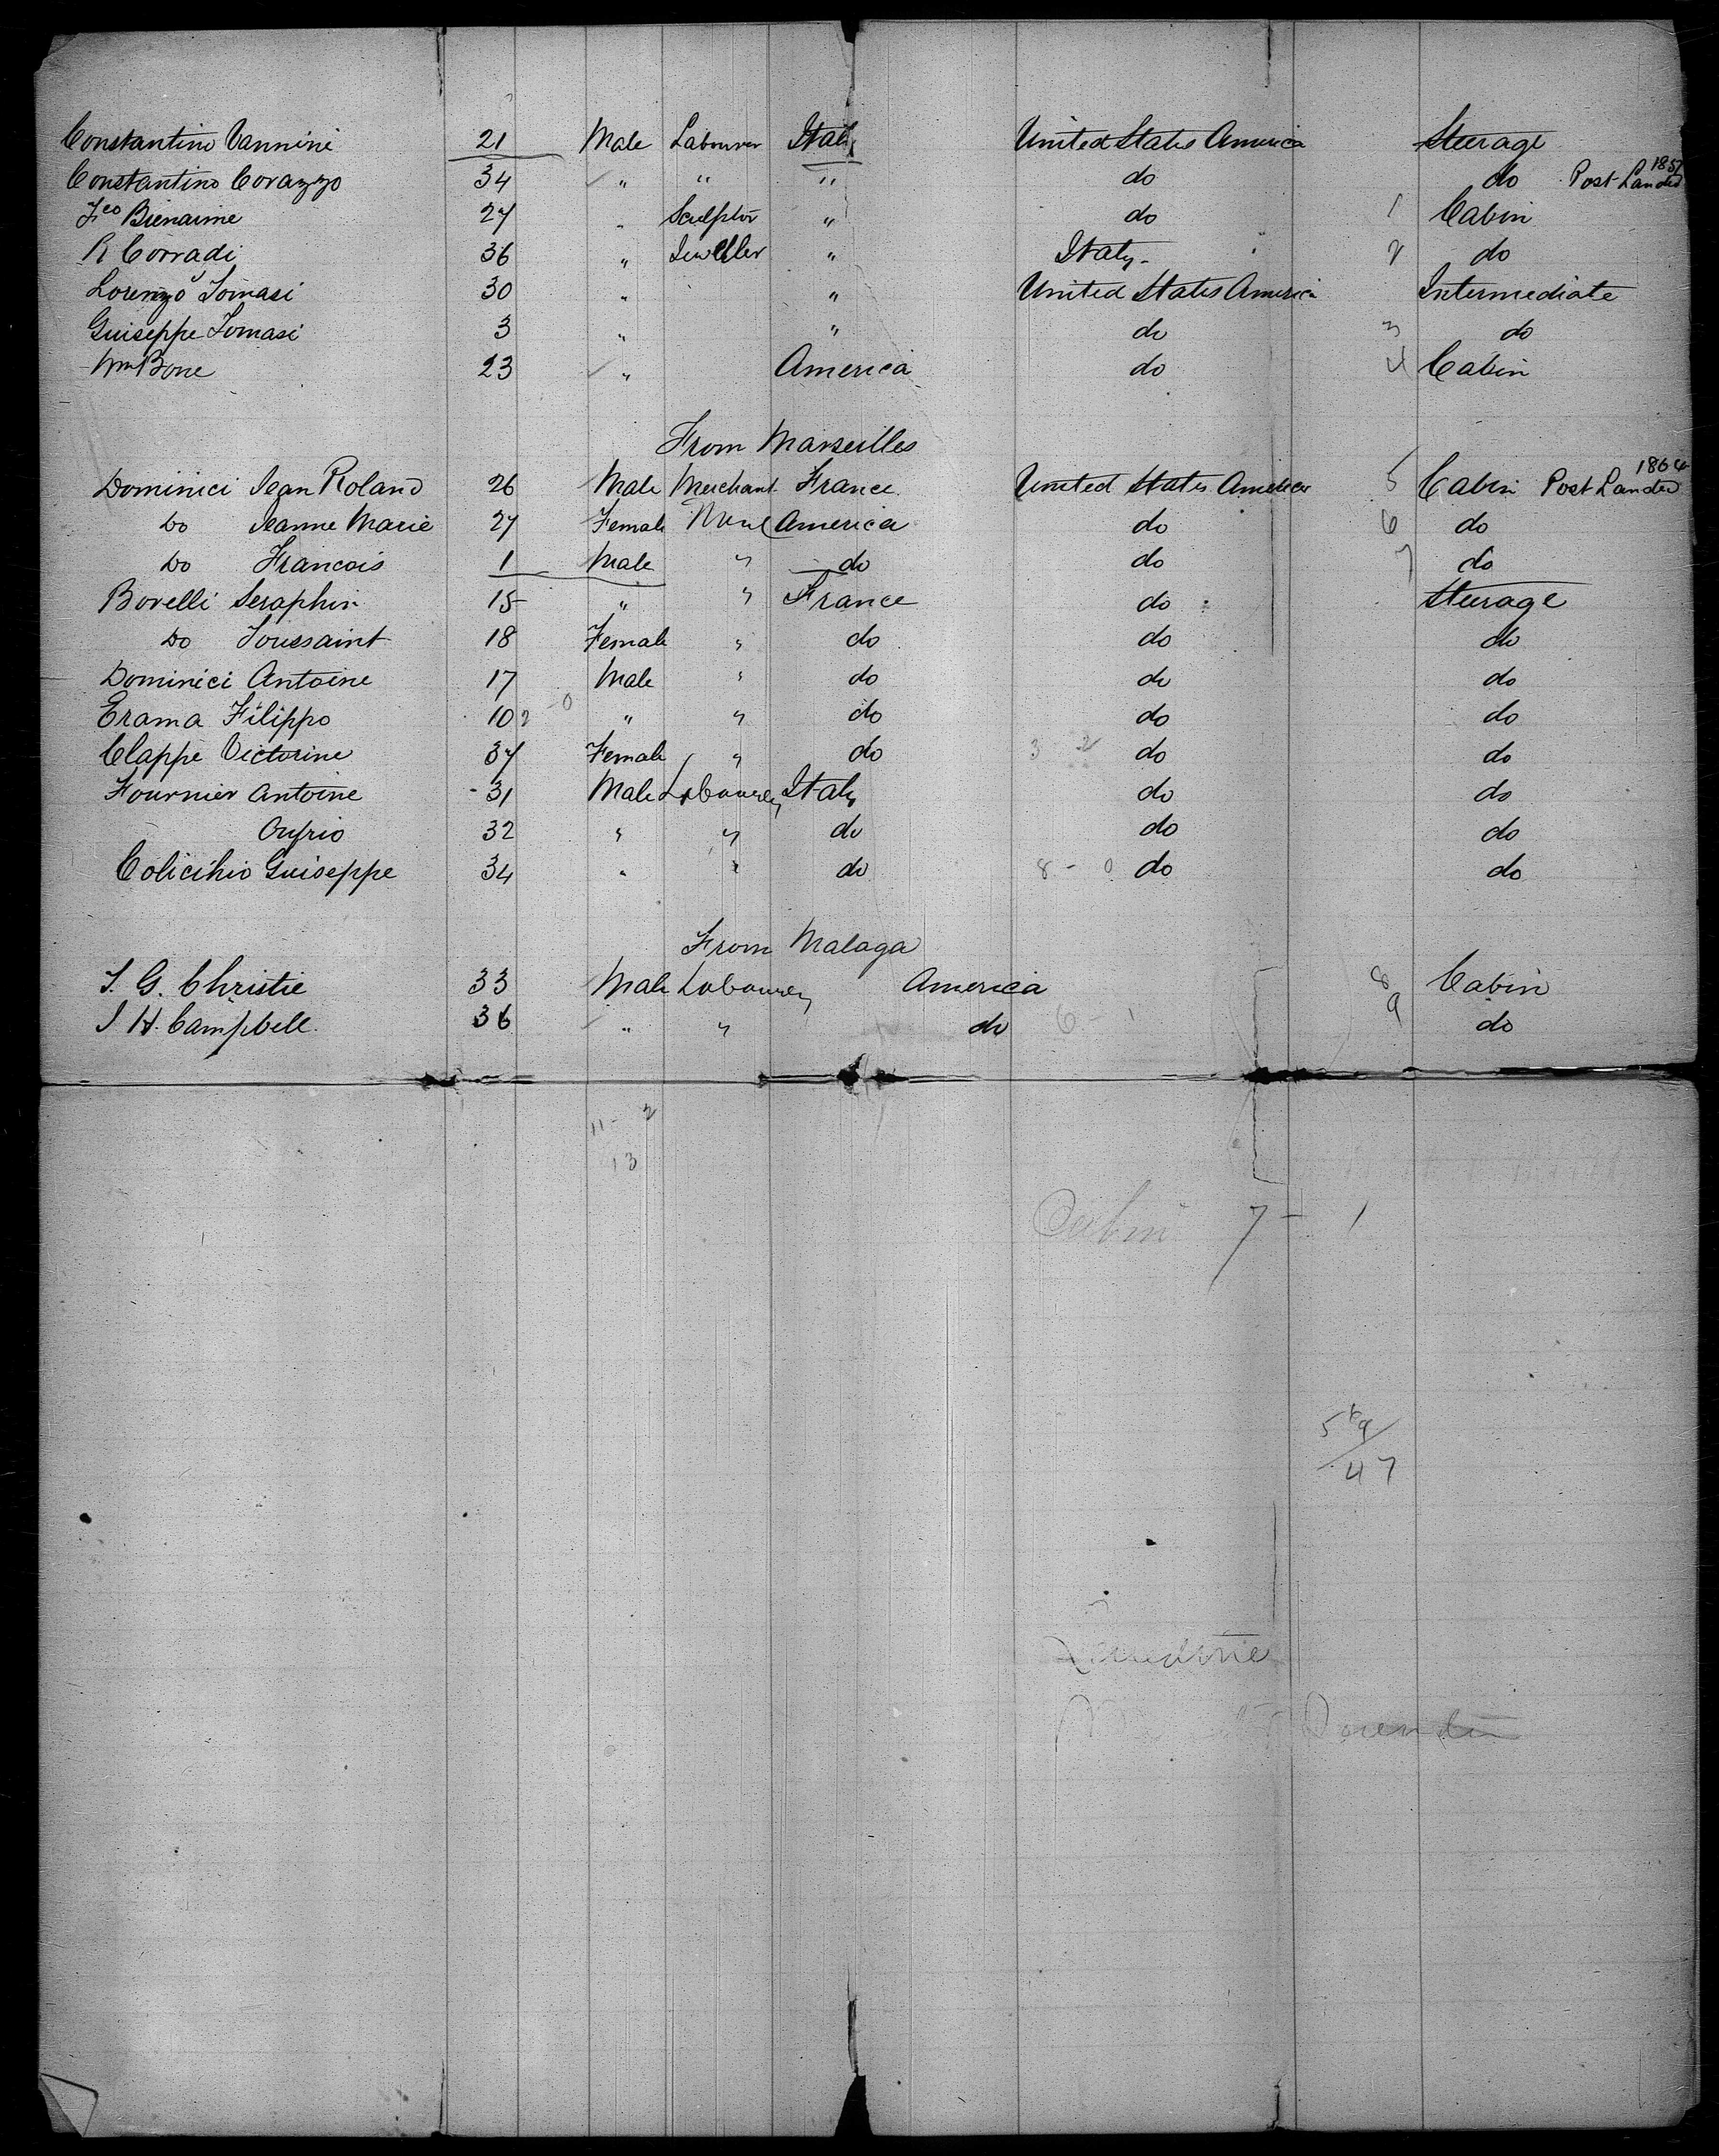 Constantino Vannini 21 Male Labourer Italy United States America Steerage
Constantino Corazzo 34 " " " do do Past Landed 1857
Fco Bienaime 27 " Sculptor " do 1 Cabin
R Corradi 36 " Jeweller " Italy 2 do
Lorenzo Tomasi 30 " " United States America Intermediate
Guiseppe Tomasi 3 " " do 3 do
Wm Bone 23 " America do 4 Cabin
From Marseilles
Dominici Jean Roland 26 Male Merchant France United States America 5 Cabin Past Landed 1864
Do Jeanne Marie 27 Female None America do 6 do
Do Francois 1 Male " do do 7 do
Borelli Seraphin 15 " " France do Steerage
Do Toussaint 18 Female " do do do
Dominici Antoine 17 Male " do do do
Erama Filippo 10 2 - 0 " " do do do
Clappe Victorine 37 Female " do 3 2 do do
Fournier Antoine 31 Male Labourer Italy do do
Onfrio 32 " " do do do
Colicihio Guiseppe 34 " " do 8 - 0 do do
From Malaga
J. G. Christie 33 Male Labourer America 8 Cabin
J H. Campbell. 36 " " do 6 - 1 9 do
11 - 2
13
Cabin 7 - 1
5 9
47